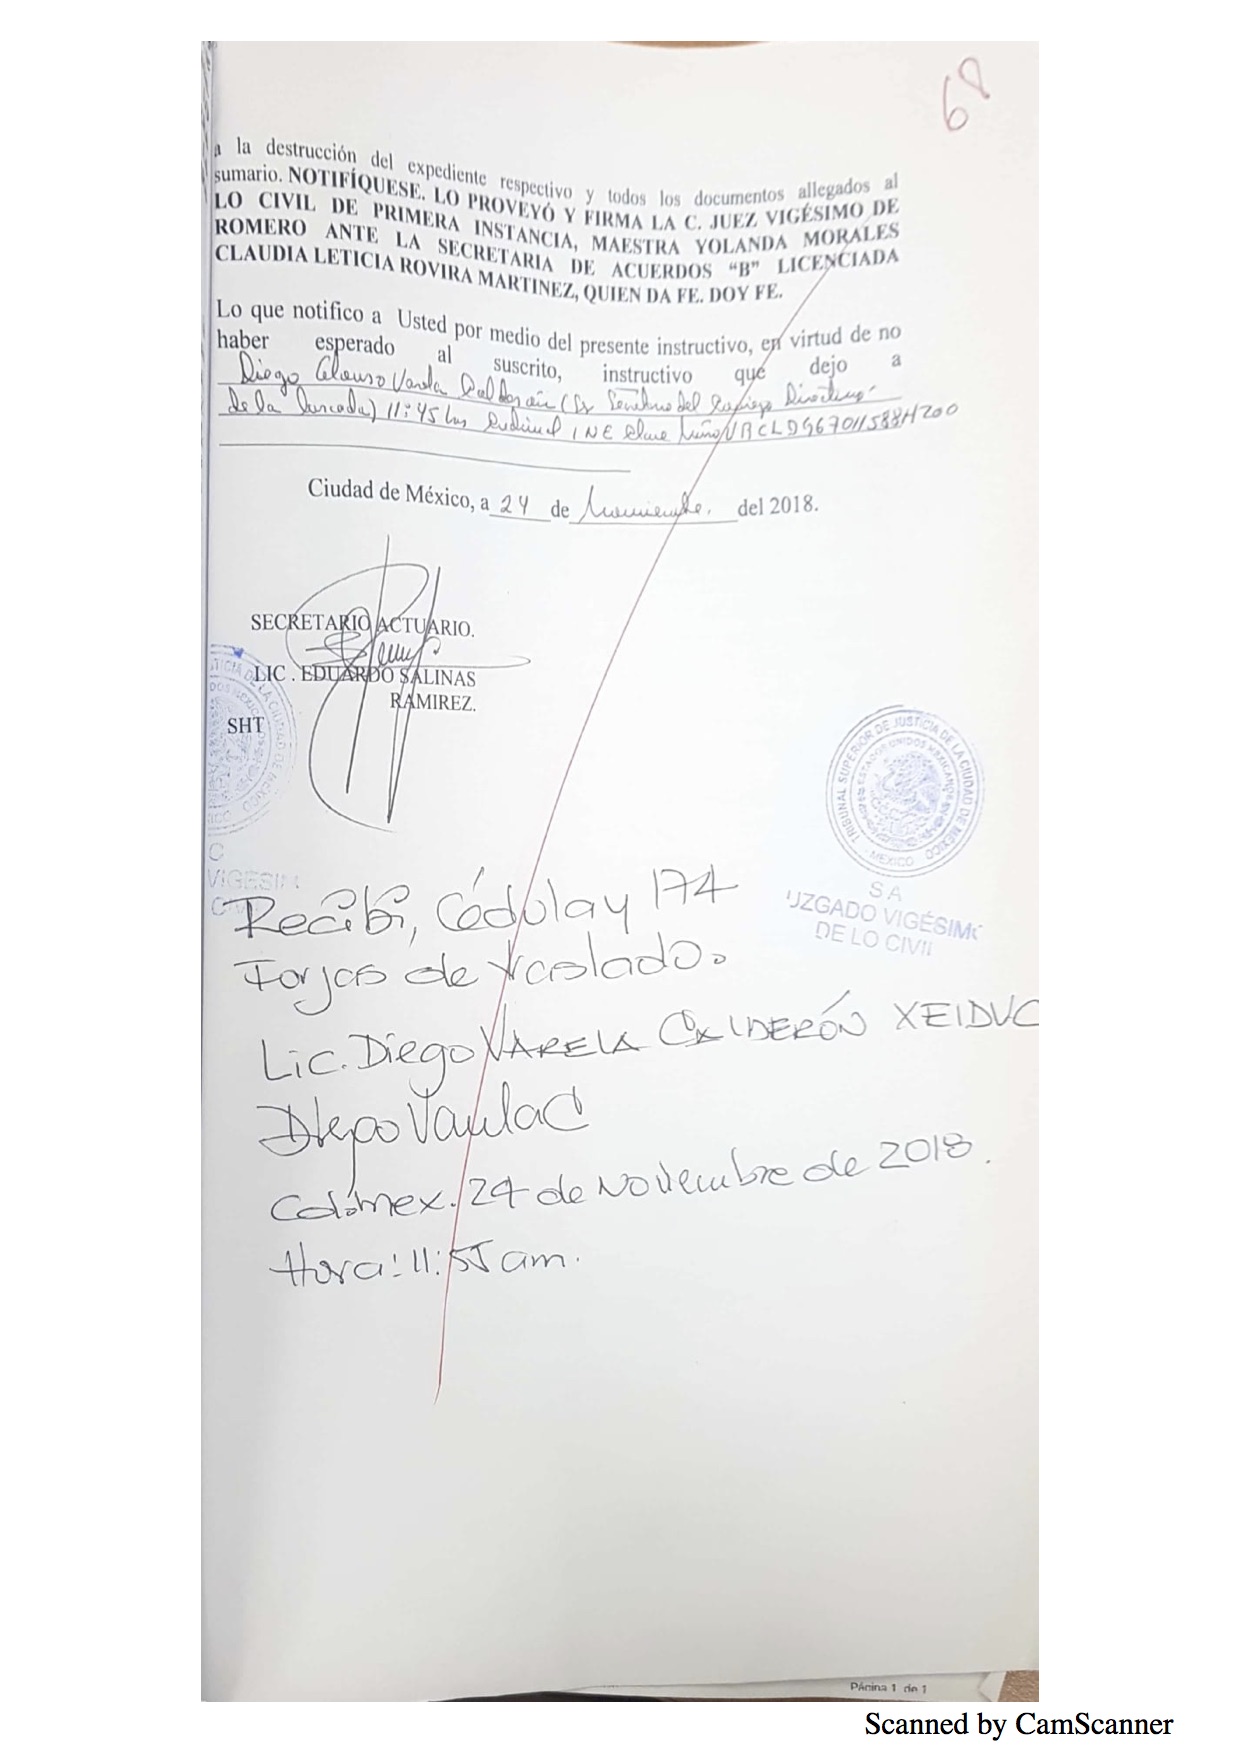 68
a la destrucción del expediente respectivo y todos los documentos allegados al
sumario. NOTIFÍQUESE. LO PROVEYÓ Y FIRMA LA C. JUEZ VIGÉSIMO DE
LO CIVIL DE PRIMERA INSTANCIA, MAESTRA YOLANDA MORALES
ROMERO ANTE LA SECRETARIA DE ACUERDOS “B” LICENCIADA
CLAUDIA LETICIA ROVIRA MARTINEZ, QUIEN DA FE. DOY FE.
Lo que notifico a Usted por medio del presente instructivo, en virtud de no
haber esperado al suscrito, instructivo que dejo a
Diego Alonso Varela Calderón
de la 11:45 hrs INE
Ciudad de México, a 24 de Noviembre. del 2018.
SECRETARIO ACTUARIO.
LIC . EDUARDO SALINAS
RAMIREZ.
SHT
TRIBUNAL SUPERIOR DE JUSTICIA DE LA CIUDAD DE MÉXICO
ESTADOS UNIDOS MEXICANOS
MÉXICO
S A
UZGADO VIGÉSIMO
DE LO CIVIL
VIGESIM
Recibí, Cédula y 174
Forjas de traslado.
Lic. Diego VARELA CALDERÓN
Diego Varela C
Cd. mex. 24 de Noviembre de 2018.
Hora: 11:55 am.
Página 1 de 1
Scanned by CamScanner